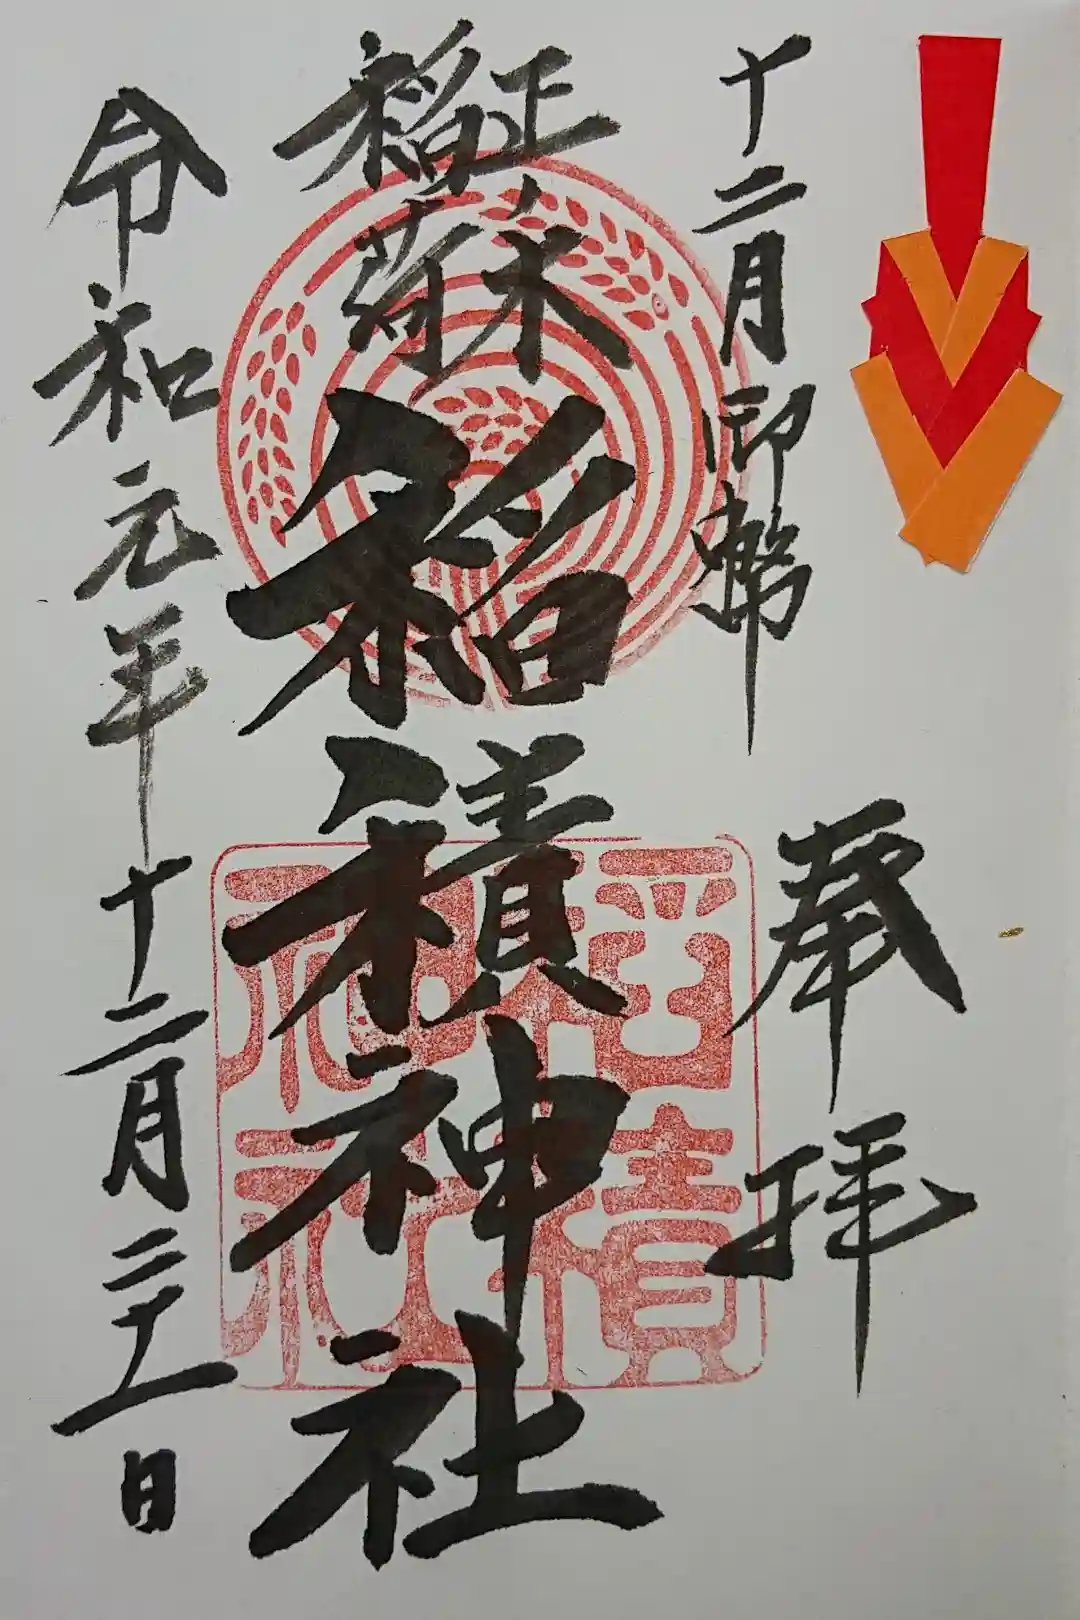 十二月御幣
奉拝
正ノ木
稲荷
稲積神社
稲積
神社
令和元年十二月二十一日